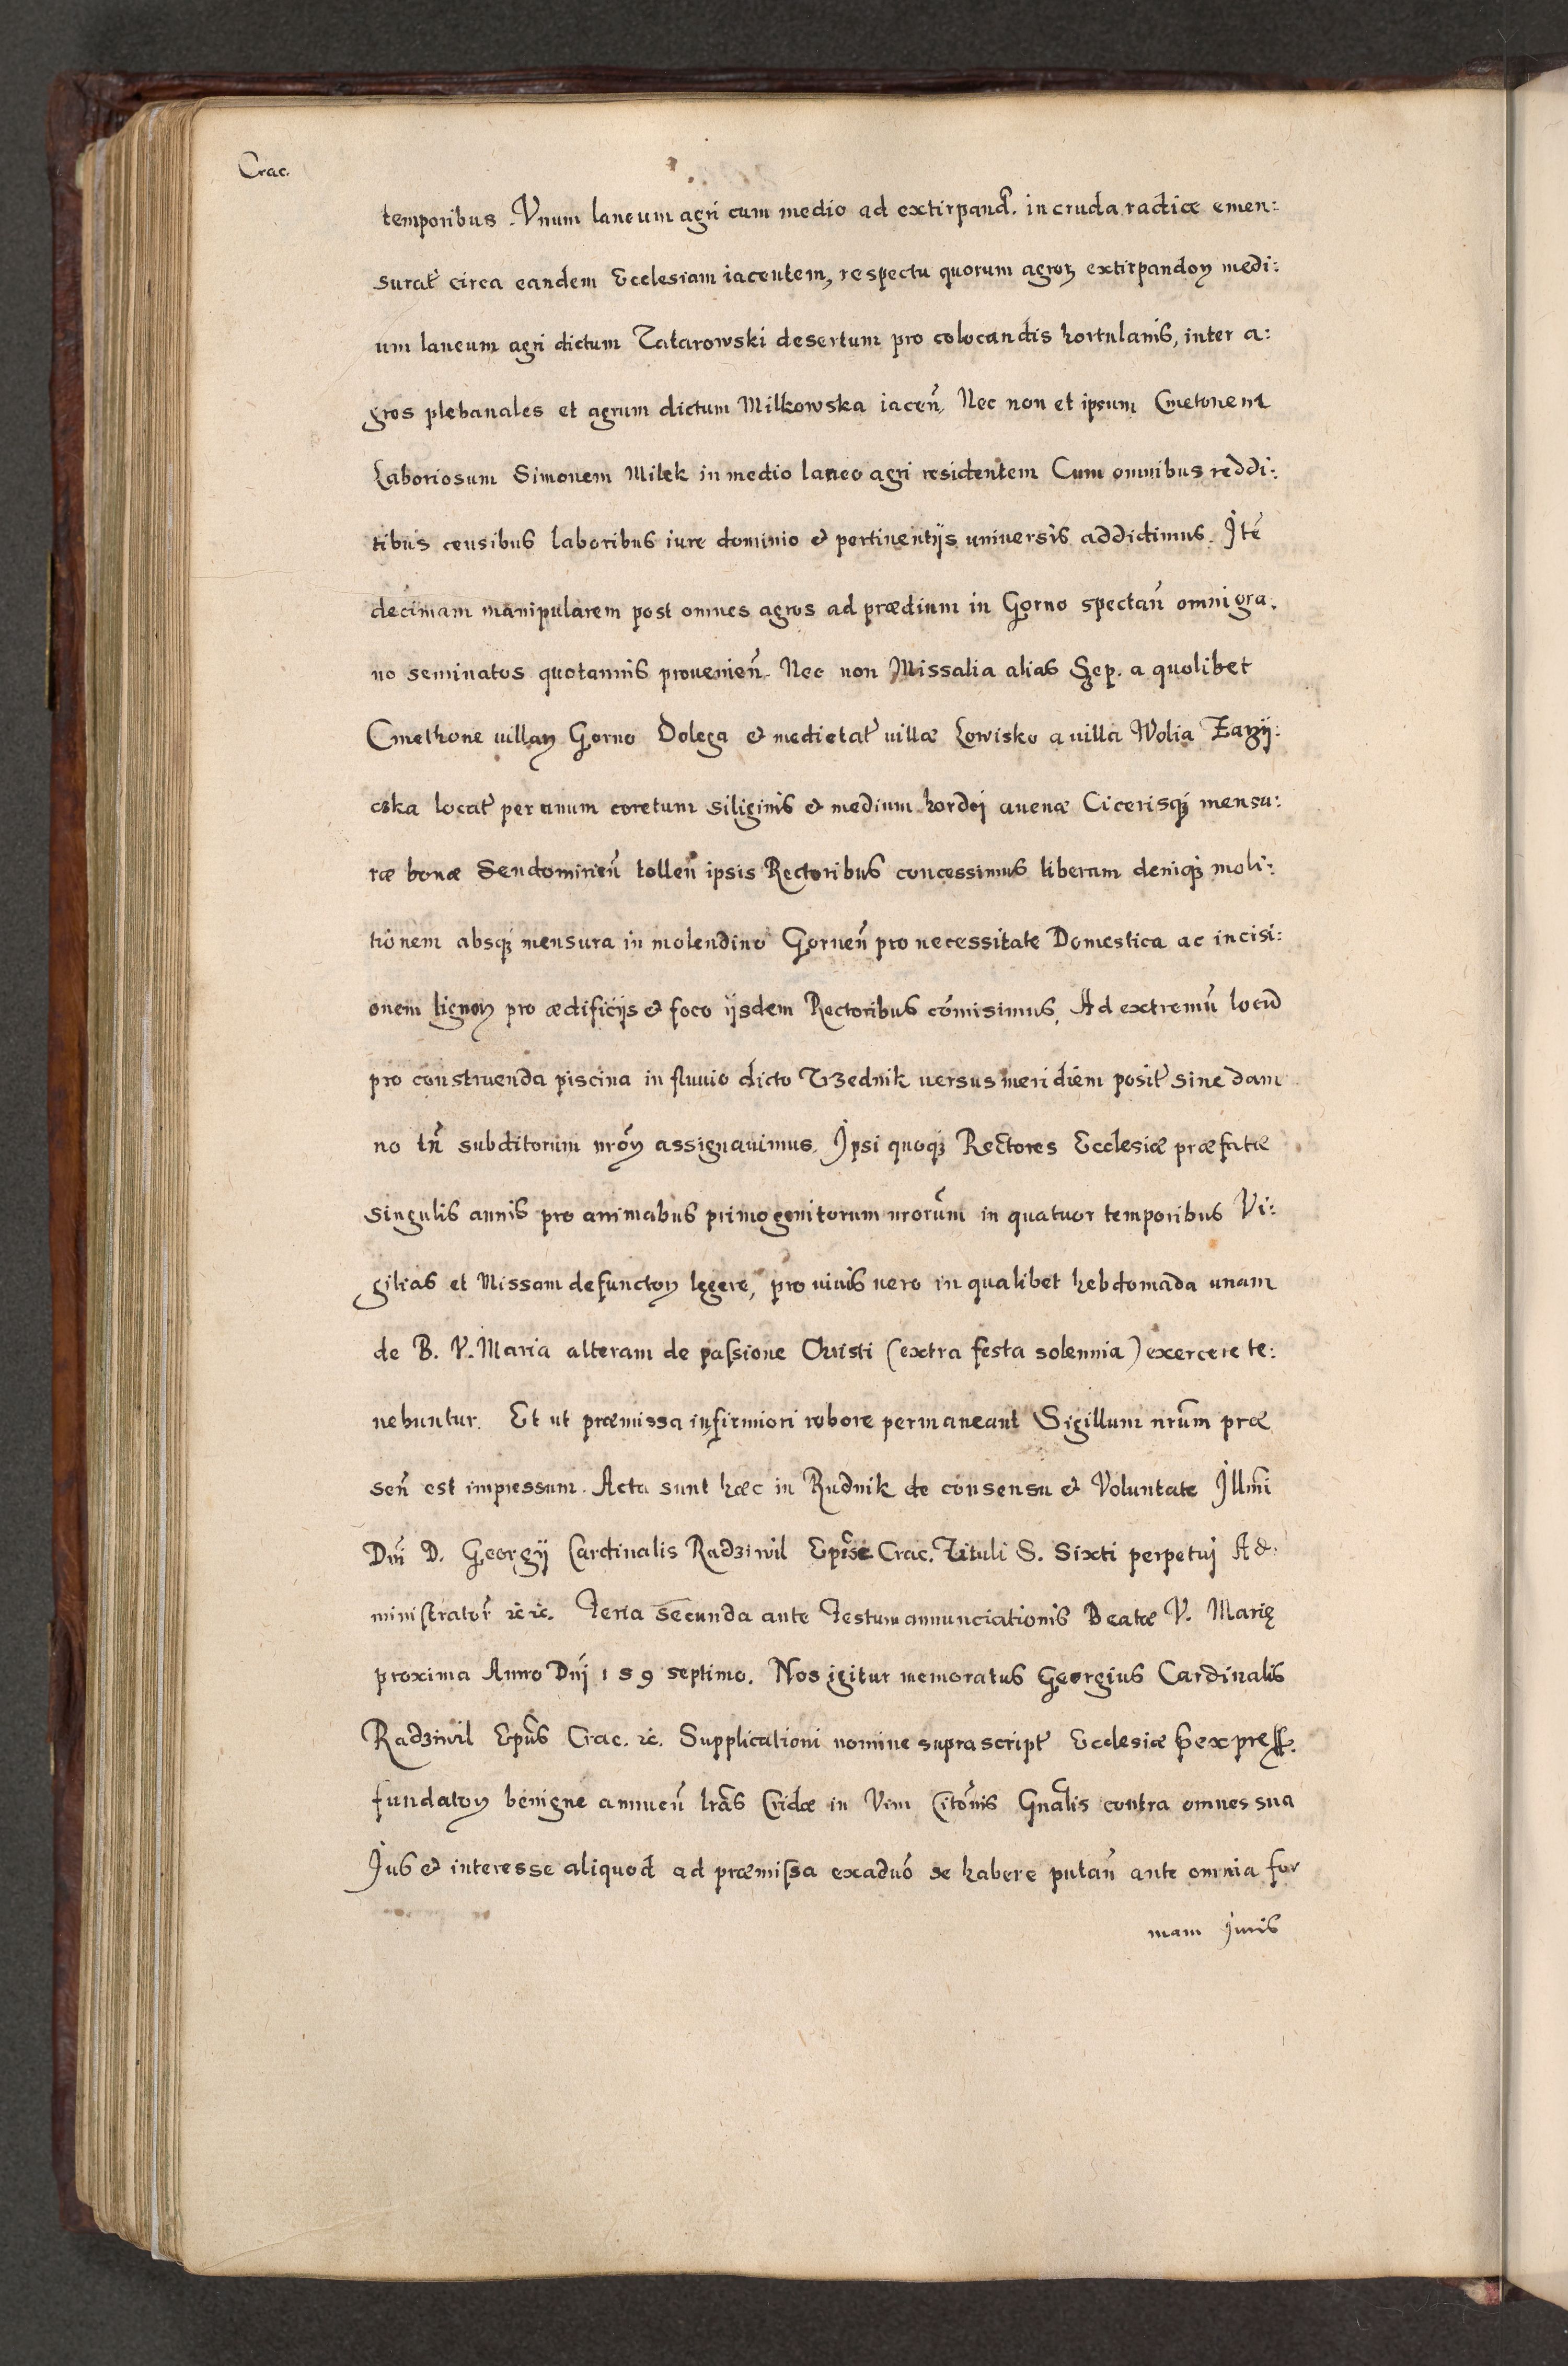 Crac.
temporibus. Vnum laneum agri cum medio ad extirpand. in cruda radice emen:
surat̃ circa eandem Ecclesiam iacentem, respectu quorum agroꝝ extirpandoꝝ medi:
um laneum agri dictum Tatarowski desertum pro colocandis hortulanis, inter a:
gros plebanales et agrum dictum Milkowska iaceñ. Nec non et ipsum Cmetonem
Laboriosum Simonem Milek in medio laneo agri residentem Cum omnibus reddi:
tibus censibus laboribus iure dominio & pertinentijs universis addidimus. Itẽ
decimam manipularem post omnes agros ad prædium in Gorno spectañ omni gra:
no seminatos quotannis provenieñ. Nec non Missalia alias Sep. a quolibet
Cmethone villaꝝ Gorno Dolega & medietat̃ villæ Lowisko a villa Wolia
cska locat̃ per unum coretum siliginis & medium hordej avenæ Cicerisqꝫ mensu:
ræ bonæ Sendomirieñ tolleñ ipsis Rectoribus concessimus liberam deniqꝫ moli:
tionem absqꝫ mensura in molendino Gorneñ pro necessitate Domestica ac incisi:
onem lignoꝝ pro ædificijs & foco ijsdem Rectoribus cõmisimus. Ad extremũ locũ
pro construenda piscina in fluvio dicto Trzednik versus meridiem posit̃ sine dam
no tñ subditorum nrõꝝ assignavimus. Ipsi quoqꝫ Rectores Ecclesiæ præfatæ
singulis annis pro animabus primogenitorum nrorũm in quatuor temporibus Vi:
gilias et Missam defunctoꝝ legere, pro vivis vero in qualibet hebdomada unam
de B. V. Maria alteram de paſsione Christi (extra festa solennia) exercere te:
nebuntur. Et ut præmissa in firmiori robore permaneant Sigillum nrũm præ
señ est impressum. Acta sunt hæc in Rudnik de consensu & Voluntate Illm̃i
Dnĩ D. Georgij Cardinalis Radziwil Epĩsc Crac. Tituli S. Sixti perpetuj Ad:
miniſtrator̃ &c &c. Feria secunda ante Festum annunciationis Beatæ V. Marię
proxima Anno Dnĩ 159 septimo. Nos igitur memoratus Georgius Cardinalis
Radziwil Epũs Crac. &c. Supplicationi nomine suprascript̃ Ecclesiæ
fundatoꝝ benigne annueñ lrãs Cridæ in Vim Citõnis Gnãlis contra omnes sua
Jus & interesse aliquod ad præmiſsa exadvõ se habere putañ ante omnia for
mam Juris